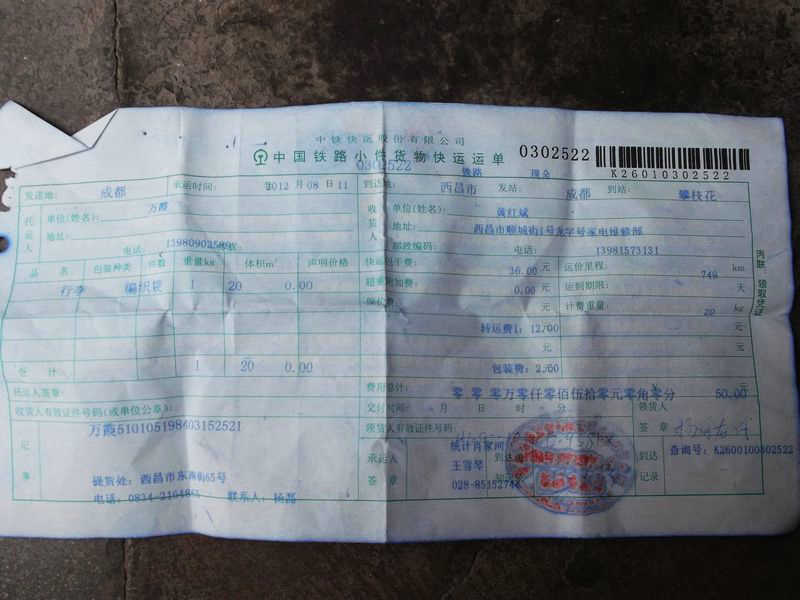 中铁快运股份有限公司
中国铁路小件货物快运运单 0302522
0302522
K26010302522
铁路 现金
发送地: 成都 承运时间: 2012 月 08 日 11 到达地: 西昌市 发站: 成都 到站: 攀枝花
托运人 单位(姓名): 万霞 收货人 单位(姓名): 黄红斌
地址: 地址: 西昌市聊城街1号龙字号家电维修部
电话: 邮政编码: 电话: 13981573131
品名 包装种类 件数 重量kg 体积m³ 声明价格 快运包干费: 36.00 元 运价里程: 749 km
行李 编织袋 1 20 0.00 超重附加费: 0.00 元 运到期限: 天
保价费: 元 计费重量: 20 kg
转运费1: 12.00 元
元 元
合计 1 20 0.00 包装费: 2.00 元
托运人签章: 费用总计: 零 零 零万零仟零佰伍拾零元零角零分 50.00 元
收货人有效证件号码(或单位公章): 交付时间: 月 日 时 分 领货人
万霞510105198403152521 领货人有效证件号码: 签章
记事 承运人签章 统计肖家河 到达 到达记录 查询号: K2600100302522
提货处: 西昌市东 街65号 王雪琴
电话: 0834-2164865 联系人: 杨磊 028-85152744
丙联 领取凭证